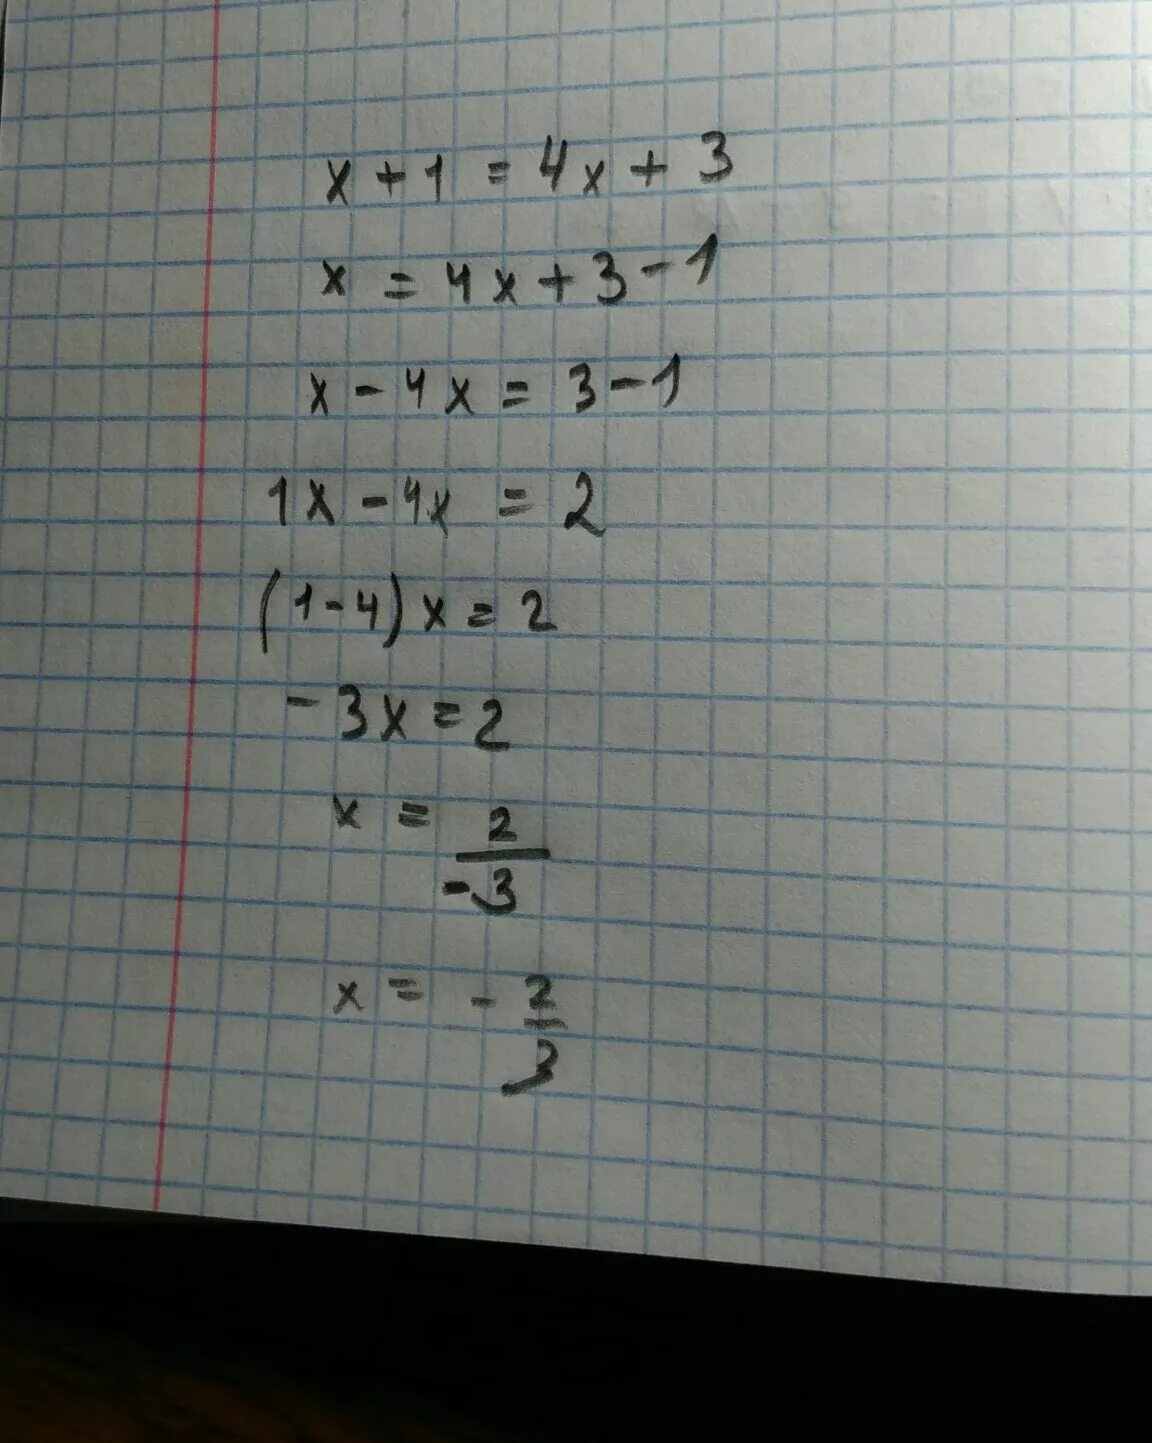 x + 1 = 4x + 3
x = 4x + 3 - 1
x - 4x = 3 - 1
1x - 4x = 2
(1 - 4) x = 2
- 3x = 2
x = 2/-3
x = - 2/3